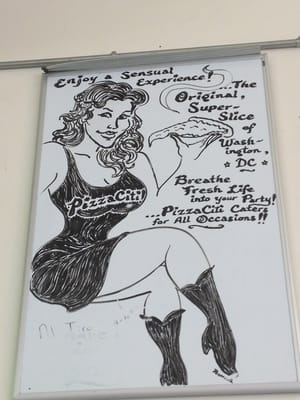 Enjoy a Sensual
Experience!
...The
Original,
Super-
Slice
of
Wash-
ington,
DC
PizzaCiti!
Breathe
Fresh Life
into your Party!
...PizzaCiti Caters
for All Occasions!!